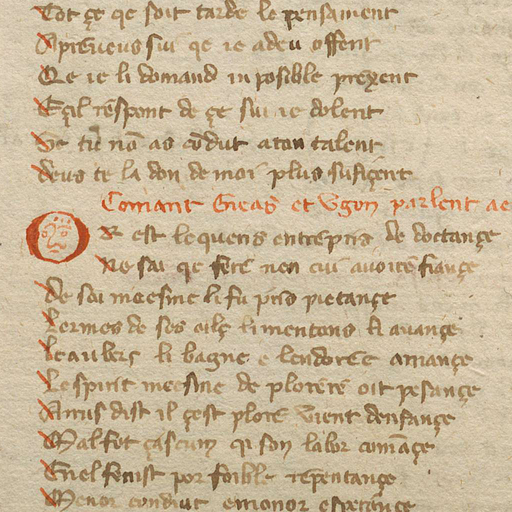 Tot çe qe soit tarde le pensament
Apreueus sui qe ie a deu offent
Qe ie li domand inposible prexent
E çil respont de çe sui ie dolent
Se tu nō as cōdut a ton talent
deus te la don de moi plus sufiçent
Comant Gieas et Vgon parlent
Or est lequens entrepris de doctançe
Ne sai qe fere nen cui auoire fiançe
De soi meesme li fu pris pietançe
Lermes de ses oilç li mentons li auançe
Leaubers li bagne e lendoree amançe
Le spirit meesme de plorere oit pesançe
Anus dist il çest plore vient denfançe
Mal fet çascun qi son labor comāçe
Enel fenist por foible repentançe
Menor condiut emonor esperançe